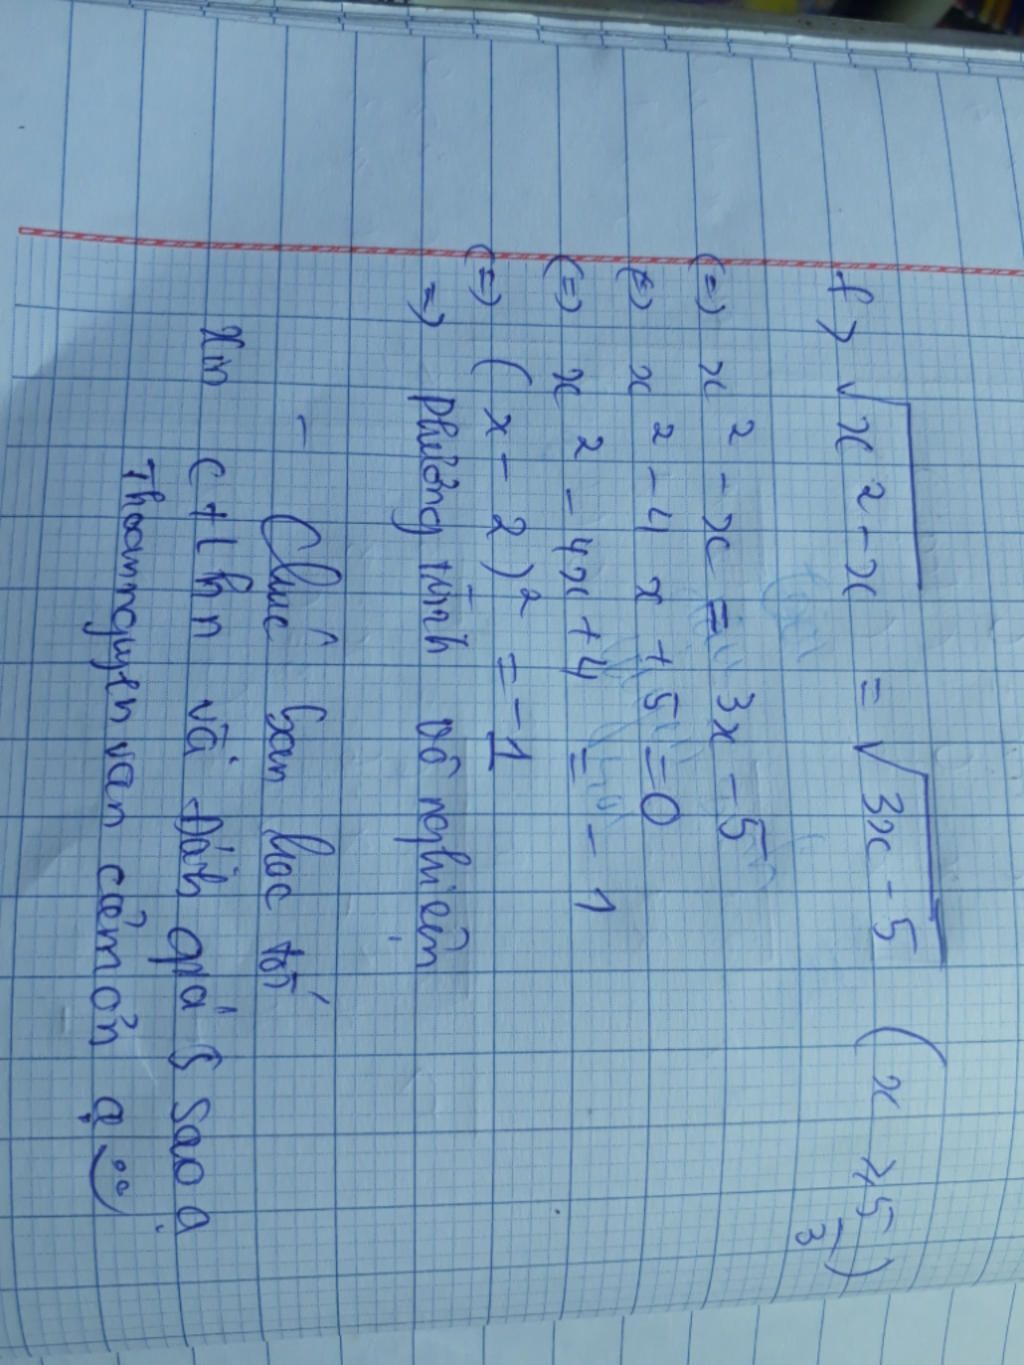 f) √x² - x = √3x - 5 (x ≥ 5/3)
(=) x² - x = 3x - 5
(=) x² - 4x + 5 = 0
(=) x² - 4x + 4 = - 1
(=) (x - 2)² = - 1
=) Phương trình vô nghiệm
- Chúc bạn học tốt
xin ctlhn và đánh giá 5 sao ạ
Thoamnguyenvan cảm ơn ạ